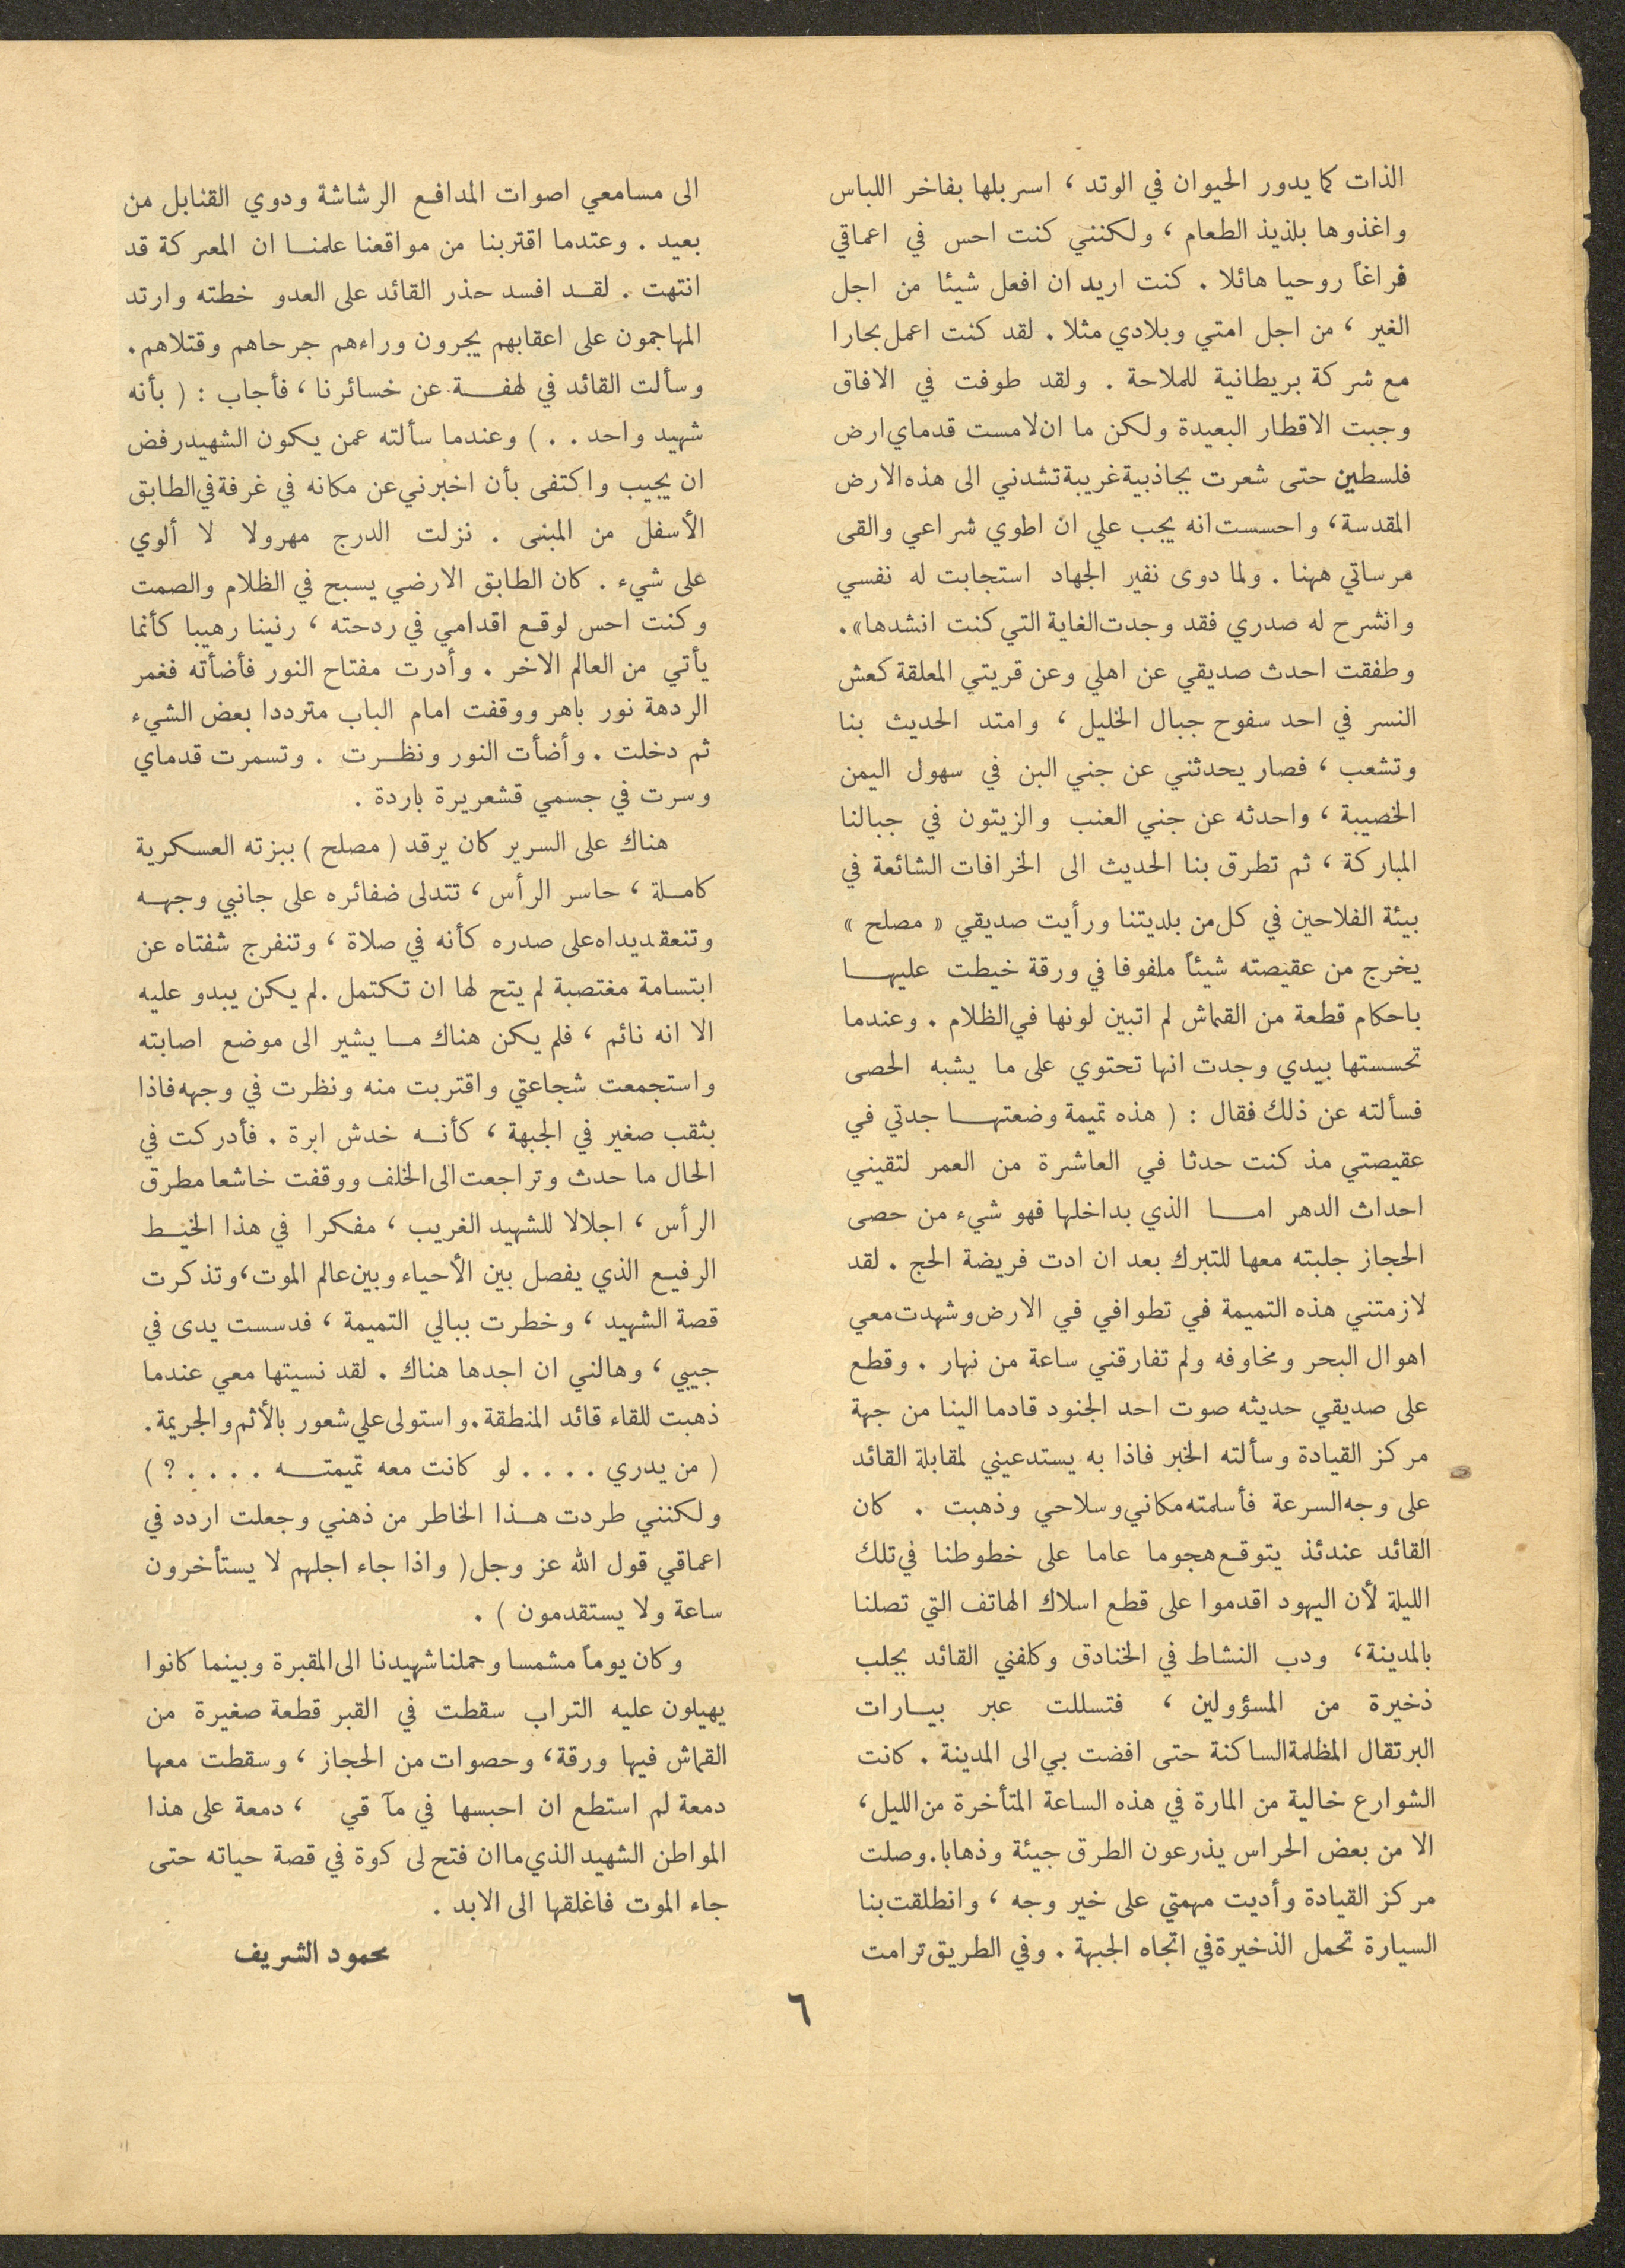 الذات كما يدور الحيوان في الوتد ، اسربلها بفاخر اللباس
واغذوها بلذيذ الطعام ، ولكنني كنت احس في اعماقي
فراغاً روحيا هائلا . كنت اريد ان افعل شيئا من اجل
الغير ، من اجل امتي وبلادي مثلا . لقد كنت اعمل بحارا
مع شركة بريطانية للملاحة . ولقد طوفت في الافاق
وجبت الاقطار البعيدة ولكن ما ان لامست قدماي ارض
فلسطين حتى شعرت بجاذبية غريبة تشدني الى هذه الارض
المقدسة ، واحسست انه يجب علي ان اطوي شراعي والقى
مرساتي ههنا . ولما دوى نفير الجهاد استجابت له نفسي
وانشرح له صدري فقد وجدت الغاية التي كنت انشدها» .
وطفقت احدث صديقي عن اهلي وعن قريتي المعلقة كعش
النسر في احد سفوح جبال الخليل ، وامتد الحديث بنا
وتشعب ، فصار يحدثني عن جني البن في سهول اليمن
الخصيبة ، واحدثه عن جني العنب والزيتون في جبالنا
المباركة ، ثم تطرق بنا الحديث الى الخرافات الشائعة في
بيئة الفلاحين في كل من بلديتنا ورأيت صديقي « مصلح »
يخرج من عقيصته شيئاً ملفوفا في ورقة خيطت عليها
باحكام قطعة من القماش لم اتبين لونها في الظلام . وعندما
تحسستها بيدي وجدت انها تحتوي على ما يشبه الحصى
فسألته عن ذلك فقال : ( هذه تميمة وضعتها جدتي في
عقيصتي مذ كنت حدثا في العاشرة من العمر لتقيني
احداث الدهر اما الذي بداخلها فهو شيء من حصى
الحجاز جلبته معها للتبرك بعد ان ادت فريضة الحج . لقد
لازمتني هذه التميمة في تطوافي في الارض وشهدت معي
اهوال البحر ومخاوفه ولم تفارقني ساعة من نهار . وقطع
على صديقي حديثه صوت احد الجنود قادما الينا من جهة
مركز القيادة وسألته الخبر فاذا به يستدعيني لمقابلة القائد
على وجه السرعة فأسلمته مكاني وسلاحي وذهبت . كان
القائد عندئذ يتوقع هجوما عاما على خطوطنا في تلك
الليلة لأن اليهود اقدموا على قطع اسلاك الهاتف التي تصلنا
بالمدينة ، ودب النشاط في الخنادق وكلفني القائد بجلب
ذخيرة من المسؤولين ، فتسللت عبر بيارات
البرتقال المظلمة الساكنة حتى افضت بي الى المدينة . كانت
الشوارع خالية من المارة في هذه الساعة المتأخرة من الليل ،
الا من بعض الحراس يذرعون الطرق جيئة وذهابا . وصلت
مركز القيادة وأديت مهمتي على خير وجه ، وانطلقت بنا
السيارة تحمل الذخيرة في اتجاه الجبهة . وفي الطريق ترامت
الى مسامعي اصوات المدافع الرشاشة ودوي القنابل من
بعيد . وعتدما اقتربنا من مواقعنا علمنا ان المعركة قد
انتهت . لقد افسد حذر القائد على العدو خطته وارتد
المهاجمون على اعقابهم يجرون وراءهم جرحاهم وقتلاهم .
وسألت القائد في لهفة عن خسائرنا ، فأجاب : ( بأنه
شهيد واحد . . ) وعندما سألته عمن يكون الشهيد رفض
ان يجيب واكتفى بأن اخبرني عن مكانه في غرفة في الطابق
الأسفل من المبنى . نزلت الدرج مهرولا لا ألوي
على شيء . كان الطابق الارضي يسبح في الظلام والصمت
وكنت احس لوقع اقدامي في ردحته ، رنينا رهيبا كأنما
يأتي من العالم الاخر . وأدرت مفتاح النور فأضأته فغمر
الردهة نور باهر ووقفت امام الباب مترددا بعض الشيء
ثم دخلت . وأضأت النور ونظرت . وتسمرت قدماي
وسرت في جسمي قشعريرة باردة .
هناك على السرير كان يرقد ( مصلح ) ببزته العسكرية
كاملة ، حاسر الرأس ، تتدلى ضفائره على جانبي وجهه
وتنعقد يداه على صدره كأنه في صلاة ، وتنفرج شفتاه عن
ابتسامة مغتصبة لم يتح لها ان تكتمل . لم يكن يبدو عليه
الا انه نائم ، فلم يكن هناك ما يشير الى موضع اصابته
واستجمعت شجاعتي واقتربت منه ونظرت في وجهه فاذا
بثقب صغير في الجبهة ، كأنه خدش ابرة . فأدركت في
الحال ما حدث وتراجعت الى الخلف ووقفت خاشعا مطرق
الرأس ، اجلالا للشهيد الغريب ، مفكرا في هذا الخيط
الرفيع الذي يفصل بين الأحياء وبين عالم الموت ، وتذكرت
قصة الشهيد ، وخطرت ببالي التميمة ، فدسست يدى في
جيبي ، وهالني ان اجدها هناك . لقد نسيتها معي عندما
ذهبت للقاء قائد المنطقة . واستولى علي شعور بالأثم والجريمة .
( من يدري . . . . لو كانت معه تميمته . . . . ؟ )
ولكنني طردت هذا الخاطر من ذهني وجعلت اردد في
اعماقي قول الله عز وجل ( واذا جاء اجلهم لا يستأخرون
ساعة ولا يستقدمون ) .
وكان يوماً مشمسا وحملنا شهيدنا الى المقبرة وبينما كانوا
يهيلون عليه التراب سقطت في القبر قطعة صغيرة من
القماش فيها ورقة ، وحصوات من الحجاز ، وسقطت معها
دمعة لم استطع ان احبسها في مآ قي ، دمعة على هذا
المواطن الشهيد الذي ما ان فتح لى كوة في قصة حياته حتى
جاء الموت فاغلقها الى الابد .
محمود الشريف
٦